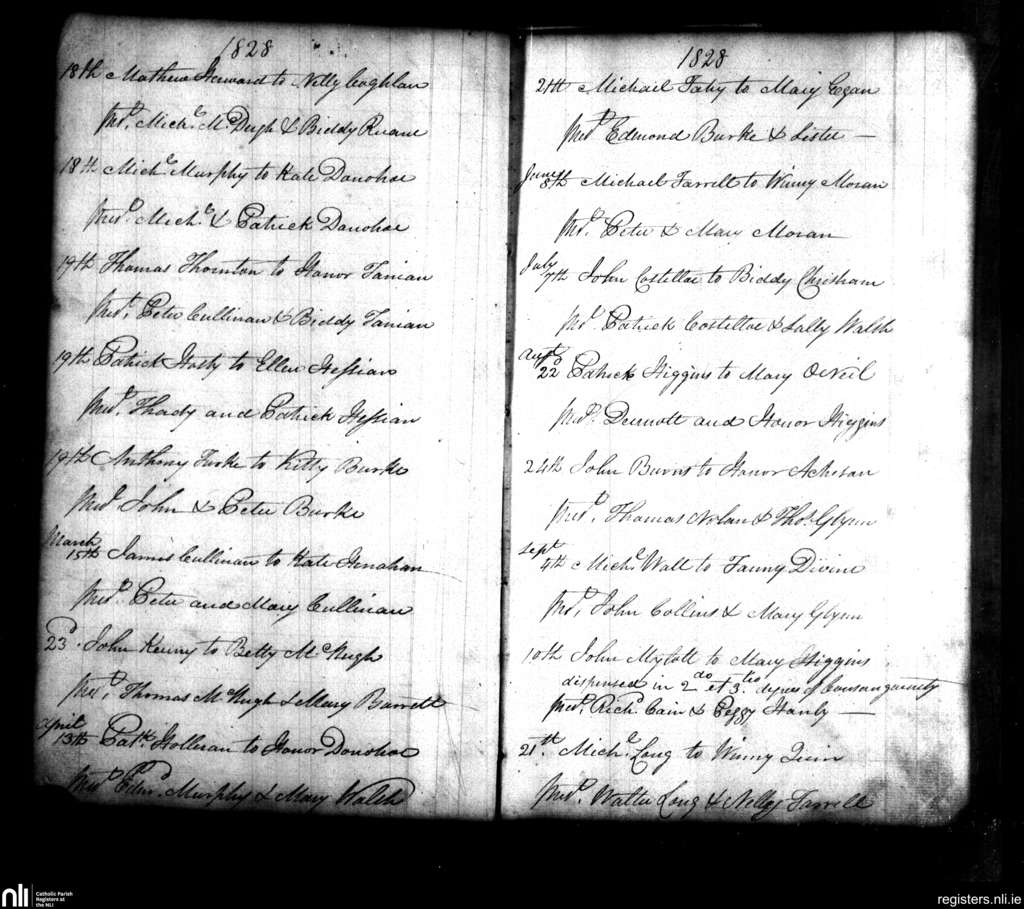 1828
18th Mathew Heward to Nelly Coghlan
Prst. Michl. McDugh & Biddy Ruane
18th Michl. Murphy to Kate Donohoe
Prst. Michl. & Patrick Donohoe
19th Thomas Thornton to Honor Fanian
Prst. Peter Cullinan & Biddy Fanian
19th Patrick Hosty to Ellen Hessian
Prst. Thady and Patrick Hessian
19th Anthony to Kitty Burke
Prst John & Peter Burke
March
15th James Cullinan to Kate Henahan
Prst. Peter and Mary Cullinan
23d. John Kenny to Betty McHugh
Prst. Thomas McHugh & Mary Barrett
April
13th Patk Holleran to Honor Donohoe
Prst Edmd. Murphy & Mary Walsh
1828
24th Michael Fahy to Mary Egan
Prst Edmond Burke & Sister —
June
8th Michael Farrell to Winny Moran
Prst. Peter & Mary Moran
July
7th John Costelloe to Biddy Chrisham
Prst. Patrick Costelloe & Sally Walsh
Augt
22d Patrick Higgins to Mary ONeil
Prst. Dermott and Honor Higgins
24th John Burns to Honor Acheson
Prst. Thomas Nolan & Thos. Glynn
Sept
4th Michl. Wall to Fanny Divine
Prst, John Collins & Mary Glynn
10th John Mylott to Mary Higgins
dispensed in 2do et 3tio degree of Consanguinity
Prst. Richd. Cain & Peggy Hanly —
21st. Michl. Long to Winny Quin
Prst. Walter Long & Nelly Farrell
nli
Catholic Parish
Registers at
the NLI
registers.nli.ie